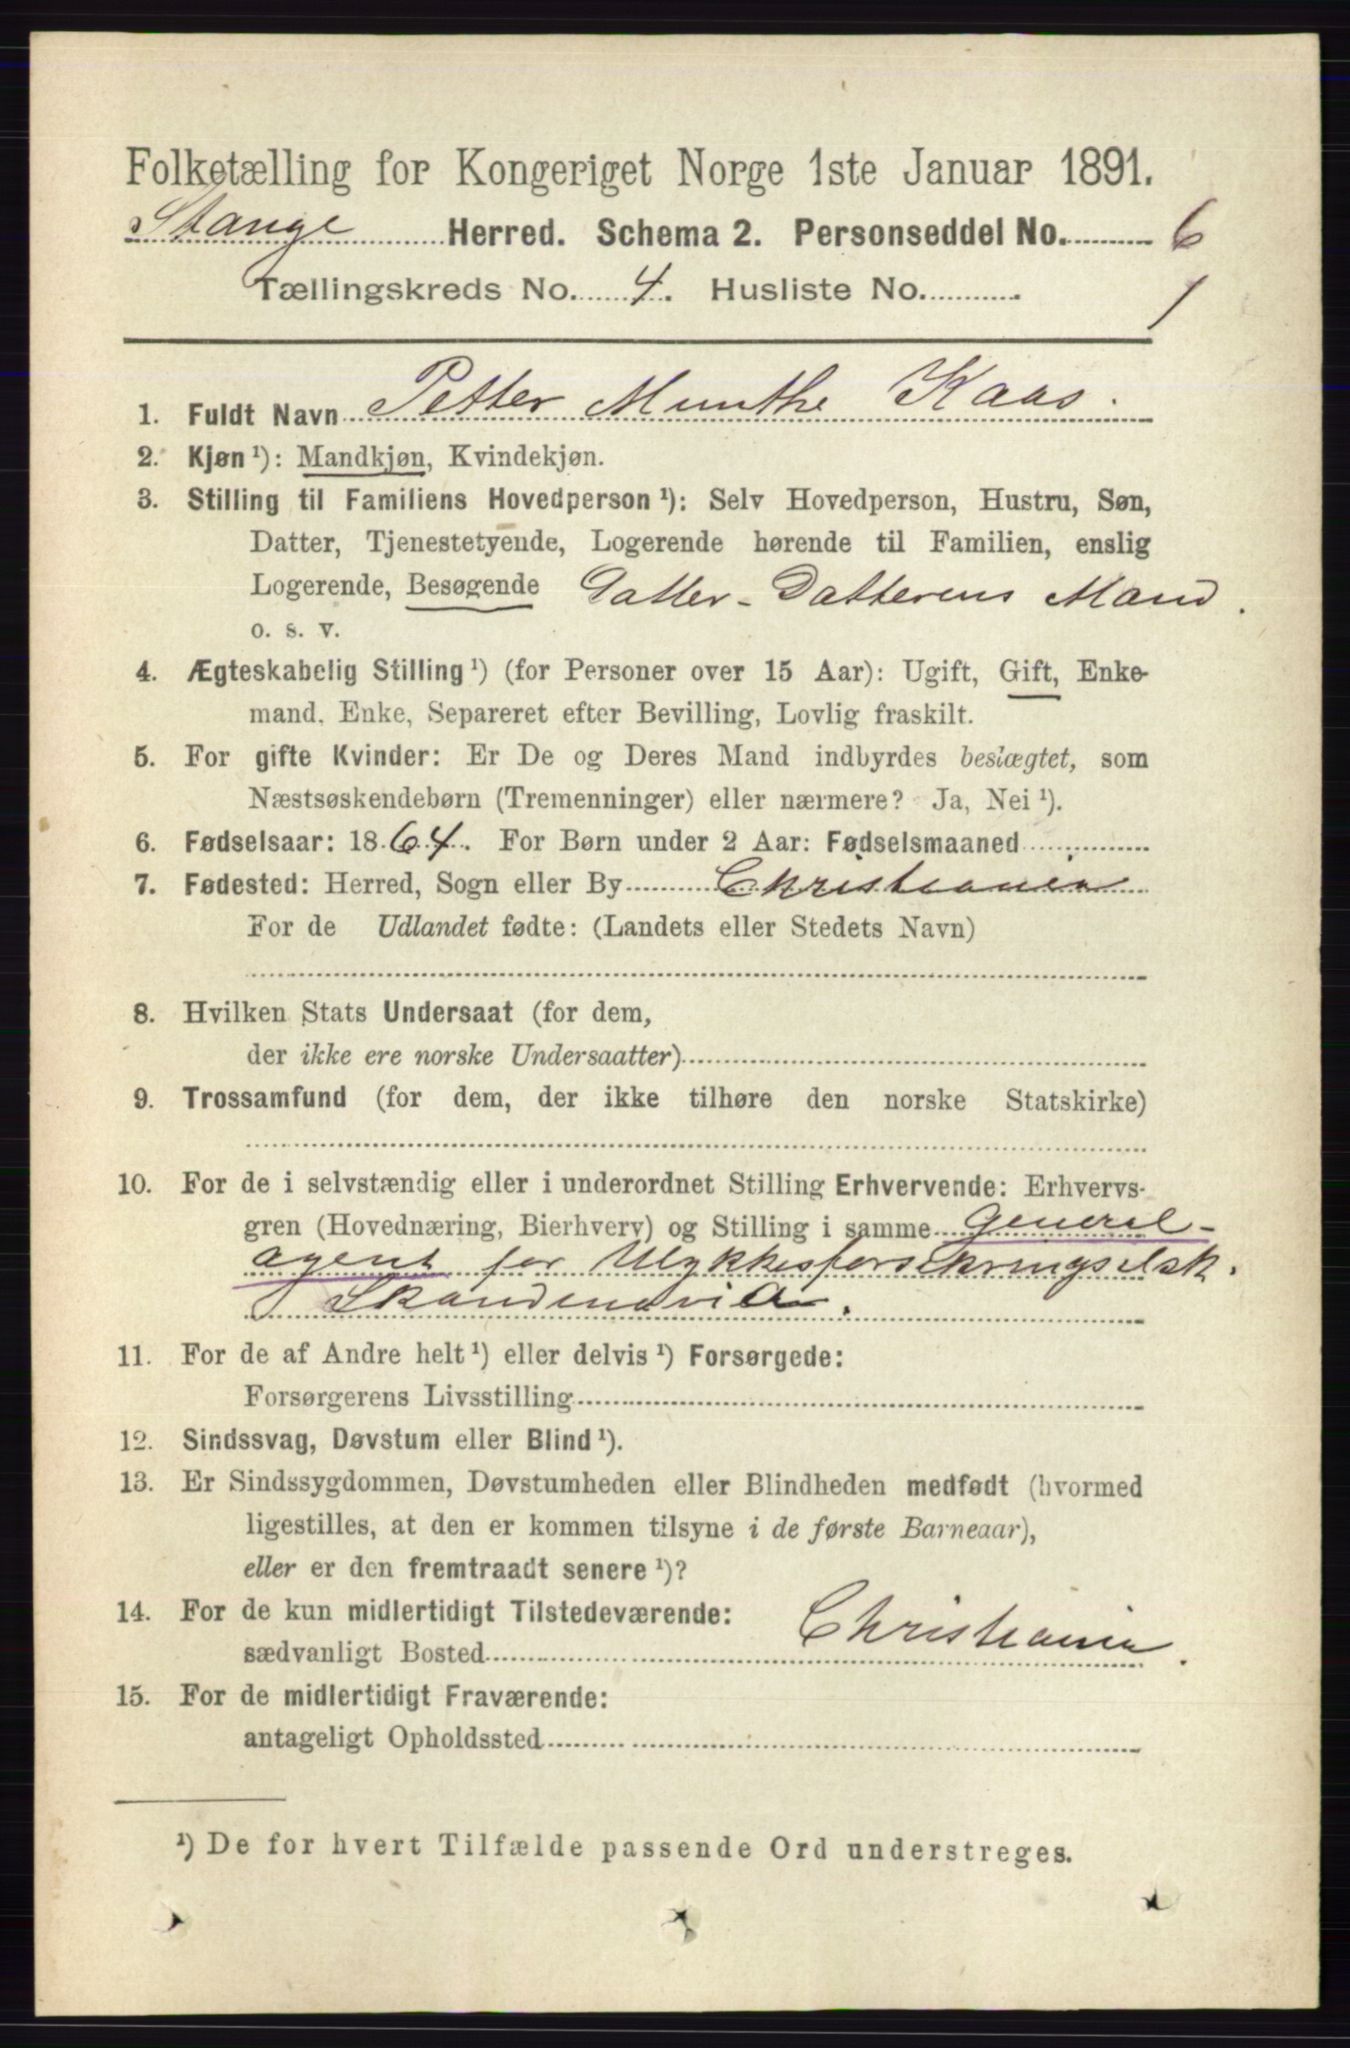 Folketælling for Kongeriget Norge 1ste Januar 1891.
Stange Herred. Schema 2. Personseddel No. 6
Tællingskreds No. 4. Husliste No. 1
1. Fuldt Navn Petter Munthe Kaas.
2. Kjøn ¹): Mandkjøn, Kvindekjøn.
3. Stilling til Familiens Hovedperson ¹): Selv Hovedperson, Hustru, Søn,
Datter, Tjenestetyende, Logerende hørende til Familien, enslig
Logerende, Besøgende Datter-Datterens Mand.
o. s. v.
4. Ægteskabelig Stilling ¹) (for Personer over 15 Aar): Ugift, Gift, Enke-
mand, Enke, Separeret efter Bevilling, Lovlig fraskilt.
5. For gifte Kvinder: Er De og Deres Mand indbyrdes beslægtet, som
Næstsøskendebørn (Tremenninger) eller nærmere? Ja, Nei ¹).
6. Fødselsaar: 1864. For Børn under 2 Aar: Fødselsmaaned
7. Fødested: Herred, Sogn eller By Christiania
For de Udlandet fødte: (Landets eller Stedets Navn)
8. Hvilken Stats Undersaat (for dem,
der ikke ere norske Undersaatter)
9. Trossamfund (for dem, der ikke tilhøre den norske Statskirke)
10. For de i selvstændig eller i underordnet Stilling Erhvervende: Erhvervs-
gren (Hovednæring, Bierhverv) og Stilling i samme General-
agent for Ulykkesforsikringselsk.
Skandinavia.
11. For de af Andre helt ¹) eller delvis ¹) Forsørgede:
Forsørgerens Livsstilling
12. Sindssvag, Døvstum eller Blind ¹).
13. Er Sindssygdommen, Døvstumheden eller Blindheden medfødt (hvormed
ligestilles, at den er kommen tilsyne i de første Barneaar),
eller er den fremtraadt senere ¹)?
14. For de kun midlertidigt Tilstedeværende:
sædvanligt Bosted Christiania.
15. For de midlertidigt Fraværende:
antageligt Opholdssted
¹) De for hvert Tilfælde passende Ord understreges.